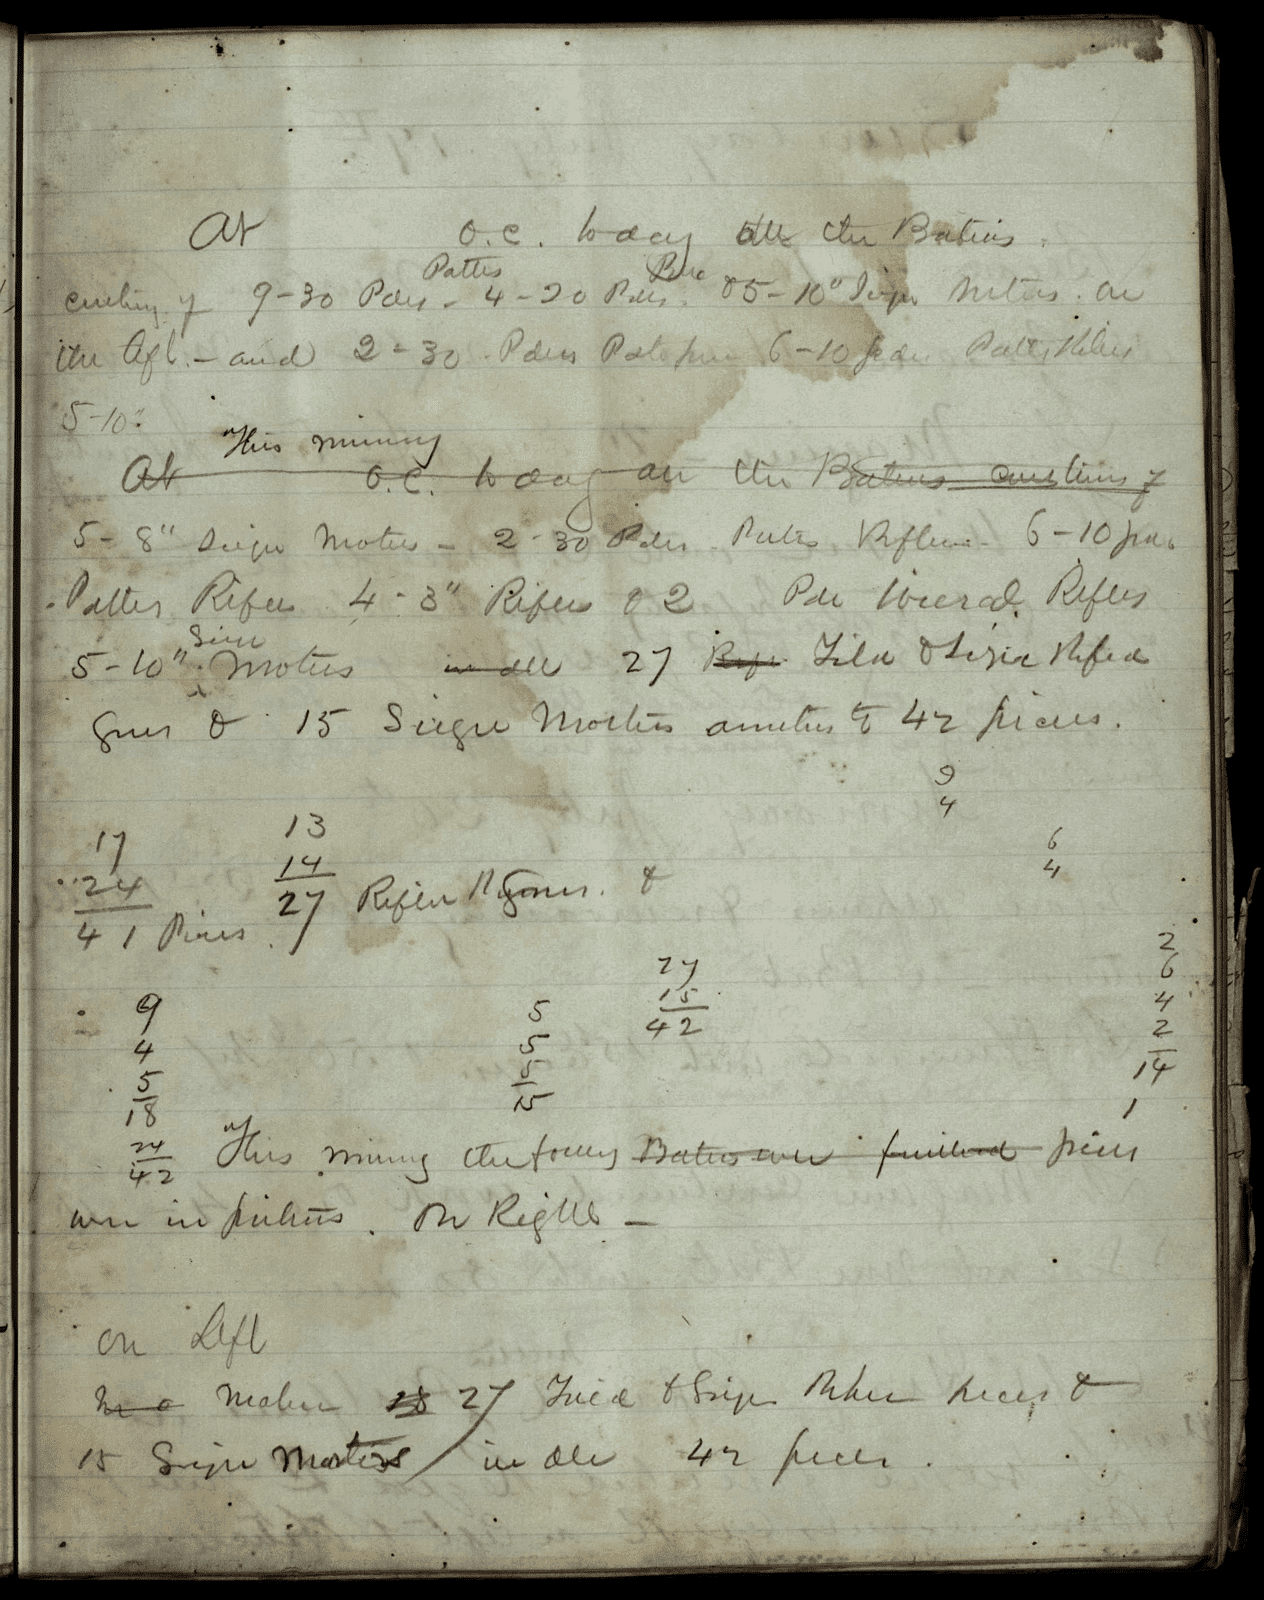 At o.c. today all the Batteries.
Parrotts
consisting of 9-30 Pdrs - 4-20 Pdrs. & 5-10" Siege Mortars. on
the left - and 2-30 Pdrs 6-10 pdrs Parrotts Rifles
5-10"
This morning
At o.c. today all the Batteries consisting of
5-8" Siege Mortars - 2-30 Pdrs. Parrotts Rifles - 6-10 pdrs
Parrotts Rifles 4-3" Rifles & 2 Pdr Wierad. Rifles
Siege
5-10" Mortars in all 27 Rifle Field & Siege Rifled
guns & 15 Siege Mortars amounting to 42 pieces.
9
4
6
4
17
24
41 Pieces
13
14
27 Rifled guns. &
2
6
4
2
14
1
27
15
42
9
4
5
18
24
42
5
5
5
15
This morning the following Batteries were finished pieces
were in position. On Right -
on Left
making 18 27 Field & Siege Rifled pieces &
15 Siege Mortars in all 42 pieces.